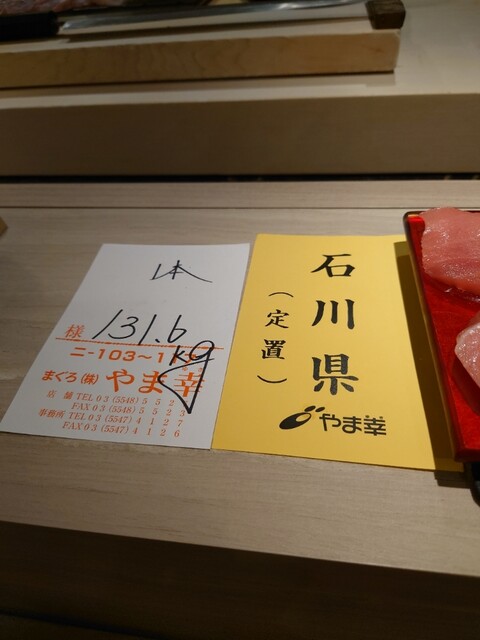 131.6
kg
様
ニ-103～1
まぐろ(株)やま幸
店 舗 TEL 03 (5548) 5 5 2
FAX 03 (5548) 5 5 2 3
事務所 TEL 03 (5547) 4 1 2 7
FAX 03 (5547) 4 1 2 6
石川県
(定置)
やま幸